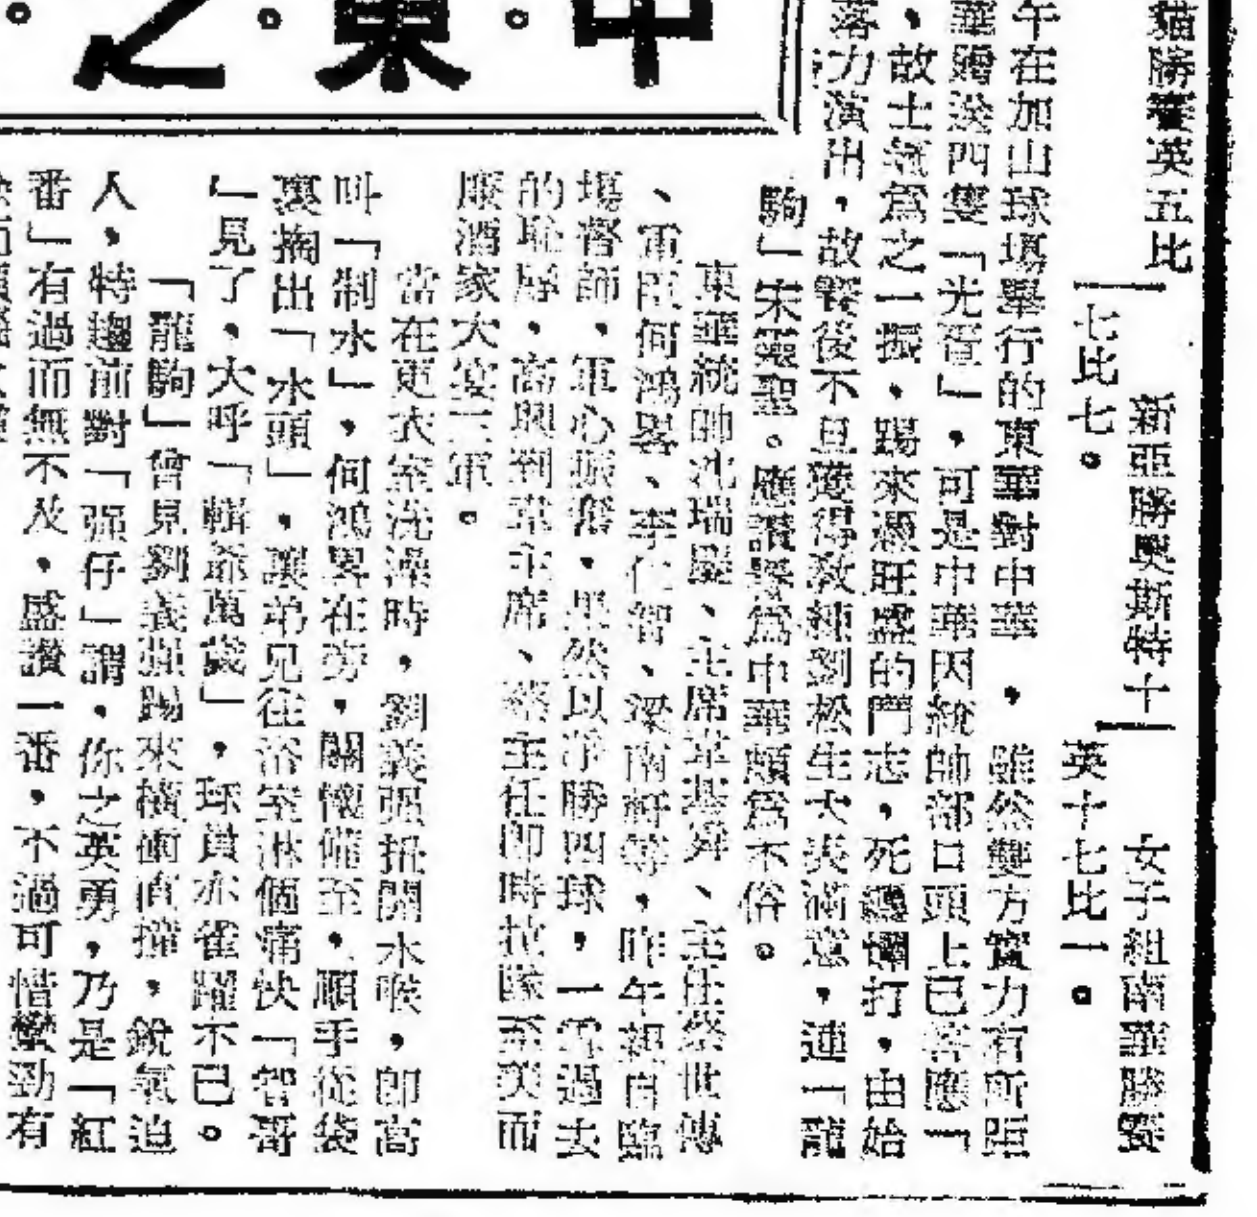 中。東。之。
貓勝賽英五比
七比七。
新亞勝奧斯特十
英十七比一。
女子組南華勝賽
午在加山球場舉行的東華對中華，雖然雙方實力有所距
華贈送四隻「光蛋」，可是中華閃統帥部口頭上已答應「
，故士氣為之一振，踢來極旺盛的鬥志，死纏爛打，由始
落力演出，故賽後不但獲得教練劉松生大表滿意，連「龍
駒」宋靈聖。應讚譽為中華頗為不俗。
東華統帥沈瑞慶、主席韋基舜、主任蔡世傳
、軍臣何鴻畧、李仁智、梁南軒等，昨午親自臨
場督師，軍心振奮，果然以淨勝四球，一雪過去
的恥辱，高興到韋主席、蔡主任即時拉隊至美而
廉酒家大宴三軍。
當在更衣室洗澡時，劉義强扭開水喉，即高
叫「制水」，何鴻畧在旁，關懷備至，順手從袋
裏摘出「水頭」，讓弟兄往浴室淋個痛快「智哥
」見了，大呼「輯爺萬歲」，球員亦雀躍不已。
「龍駒」曾見劉義强踢來橫衝直撞，銳氣迫
人，特趨前對「强仔」謂，你之英勇，乃是「紅
番」有過而無不及，盛讚一番，不過可惜蠻勁有